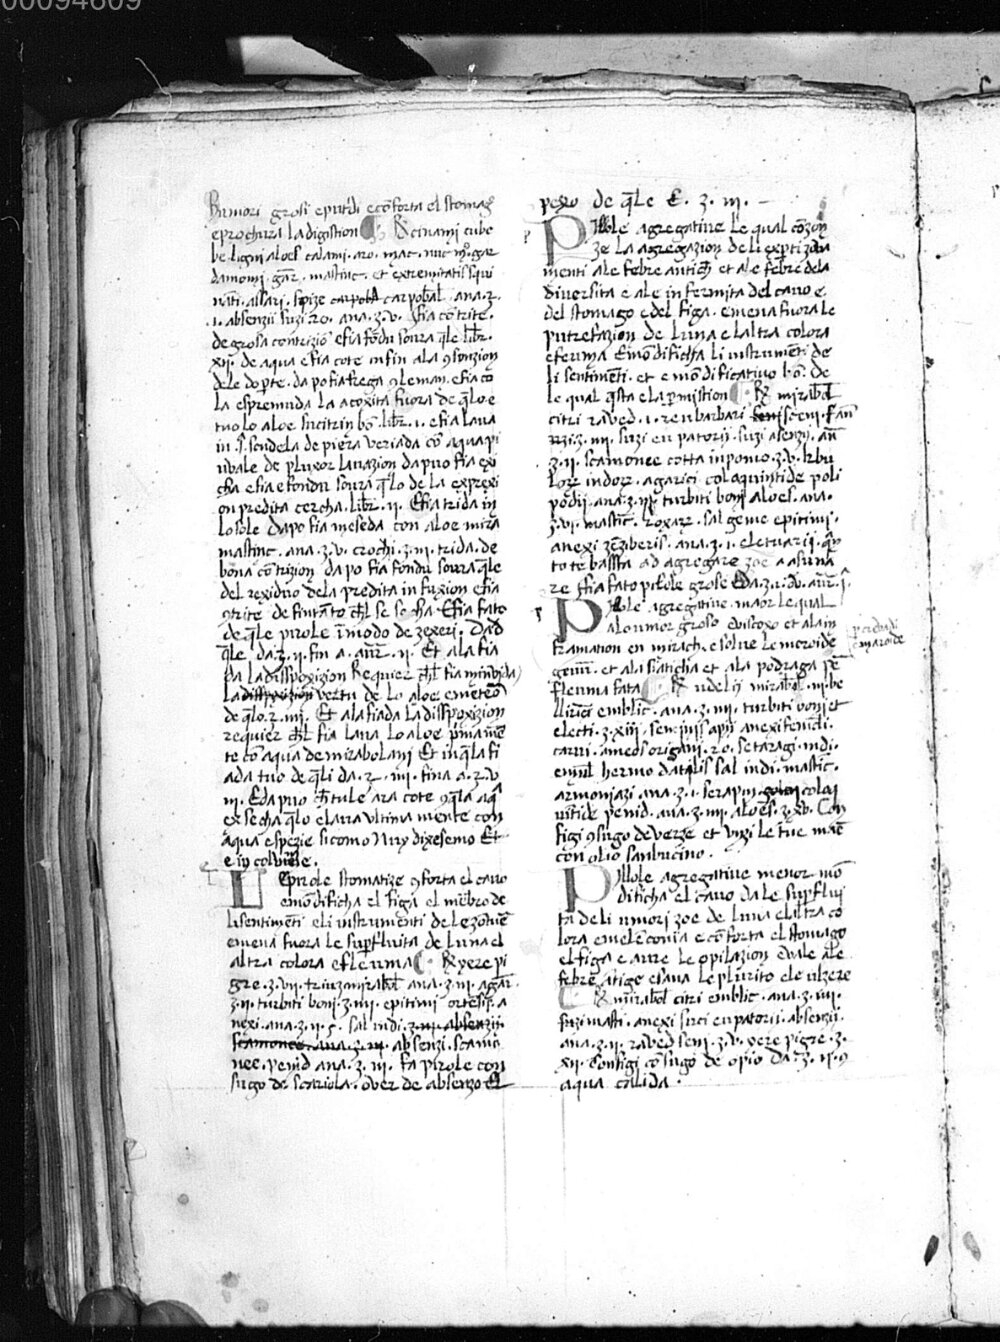 00094609
humori grosi e putridi e conforta el stomag
e prochura la digistion ℞ cinami cube
be ligni aloes calami. aro. mac. nuc mo. gar
damomi. gar. mastinc. et extremitatis squi
nāti. assari. spize carpob carpobal. ana. ʒ.
.i. absenzii suzi zo. ana. ʒ. v. fia cōtrite.
de grosa contrizio e fia fōdu soura qle libr.
xii. de aqua e fia cote infin ala 9sonzion
dele do pte. da po fia frega 9 le man. e fia co
la espremuda la acoxita fuora de qlo. e
tuo lo aloe sucitrin bō libr. i. e fia laua
in .i. scudela de piera veriada cō aqua pi
ubale de pluxor lauazion da puo fia exi
cha e fia efondu soura qlo de la exprexi
on predita cercha. libr. ii. E fia trida in
lo sole dapo fia meseda con aloe mira
mastinc. ana. ʒ. v. crochi. ʒ. iii. trida. de
bona cōtrizion da po fia fondu soura qle
del rexiduo dela predita infuxion e fia
9trite de fintāto chl se secha. E fia fato
de qle pirole i modo de zexeri. Dad
qle da. ʒ. ii. fin a. aur. ii. Et ala fia
da la disspoxizion requier chl fia minuida
la disspoxizion vertu de lo aloe e meterō
de qlo. ʒ. iiii. Et ala fiada la disspoxizion
requier chl fia laua lo aloe pimamē
te cō aqua de mirabolani Et in qla fi
ada tuo de qli da. ʒ. iii. fina a. ʒ. v
iii. E da puo ch tu le ara cote 9 qla aq
exsecha qlo e laua ultina mente con
aqua e spezie si como Nuy dixesemo Et
e in coluibe.
Le pirole stomatize 9forta el cauo
e mōdificha el figa el mēbro de
li sentimēti e li instrumenti de le zōture
e mena fuora le supfluita de luna el
altra colora e fleuma ℞ yere pi
gre. ʒ. vii. triuz mirabol. ana. ʒ. iii. agar.
ʒ. ii. turbiti boni. ʒ. iiii. epitimi ortesis. a
nexi. ana. ʒ. ii. s. sal indi. ʒ. iii. absenzii.
scamonee. ana. ʒ. iii. absenzi. scamo
nee. penid ana. ʒ. iii. fa pirole con
sugo de scariola. over de absenzo Et
pexo de qle E. ʒ. iii.
Pillole agregatiue le qual cōzon
ze la agregazion de li exptizda
menti a le febre antich et a le febre dela
diversita e a le infermita del cauo e
del stomago e del figa. e mena fuora le
putrefazion de luna e laltra colora
e feruma E mōdificha li instrumēti de
li sentimēti. et e mōdificativo bō. de
le qual qsta e la pmistion ℞ mirabol
citri raved. i. reubarbari seni. fan
ʒ. iii. suzi eupatorii. suzi asenzii. an
ʒ. ii. scamonee cotta in pomo. ʒ. v. krbu
lorz indorz. agarici coloquintide poli
podii. ana. ʒ. iii turbiti boni aloes. ana.
ʒ. vi. mastic. roxarz. sal geme epitimi.
anexi zēziberis. ana. ʒ. i. eletuarii. qto
to te bassta ad agregare zoe a asuna
re e fia fato pillole grose E da. ʒ. i. ad. aur. i.
Pillole agregatiue. maor le qual
al o umor groso e viscoxo et ala in
framation e mirach. e solue le moroide
geniti. et ala siaticha et ala podraga fe
fleuma fata ℞ udelii mirabol. iii. be
llirici emblic. ana. ʒ. iiii. turbiti boni et
electi. ʒ. xiii. sen. iuss apii anexi fenicli.
carui. ameos origani. zo. setaragi. indi.
enul hermodatilis sal indi. mastic.
armoniazi ana. ʒ. i. serapin coloq
uintide penid. ana. ʒ. iiii. aloes. ʒ. xv. Con
figi 9 sugo de verze et unzi le tue mane
con olio sanbucino.
Pillole agregatiue menor mō
dificha el cauo da le supflui
ta de li umori zoe de luna e laltra co
lora e melēconia e cōforta el stomago
el figa e aure le opilazion e vale a le
febre atige e sana le plurito e le ulzere
℞ mirabol citri emblic. ana. ʒ. iiii.
suzi masti. anexi suci eupatorii. absenzii.
ana. ʒ. ii. raved seni. ʒ. v. yere pigre. ʒ.
xii. Configi cō sugo de opio da. ʒ. ii. 9
aqua calida.